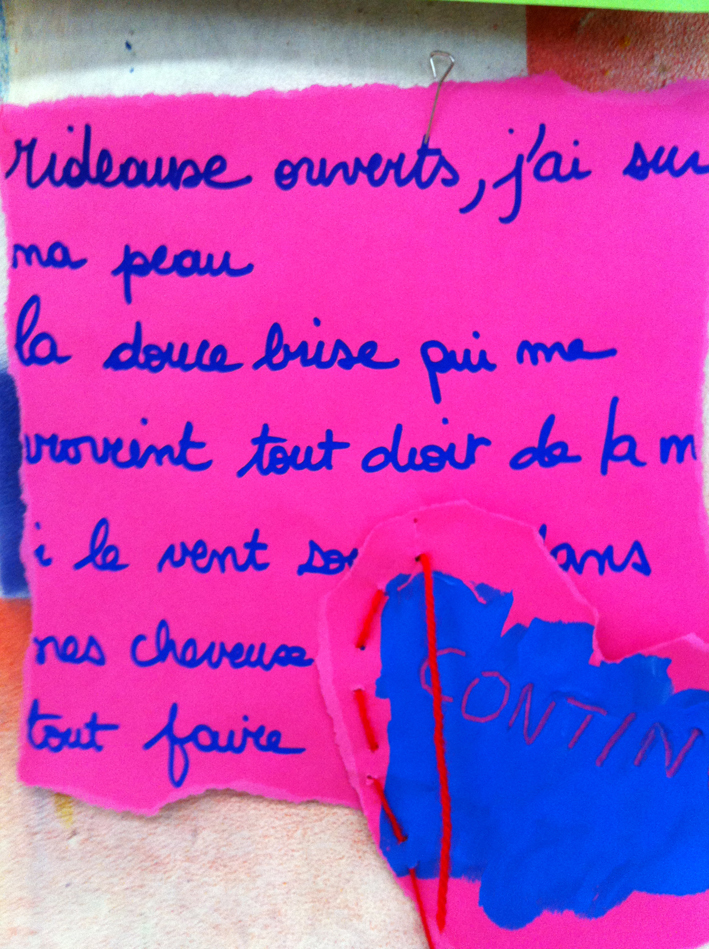 rideause ouverts, j'ai sur
ma peau
la douce brise qui me
provient tout droit de la m
i le vent sou dans
mes cheveuse
tout faire
CONTIN